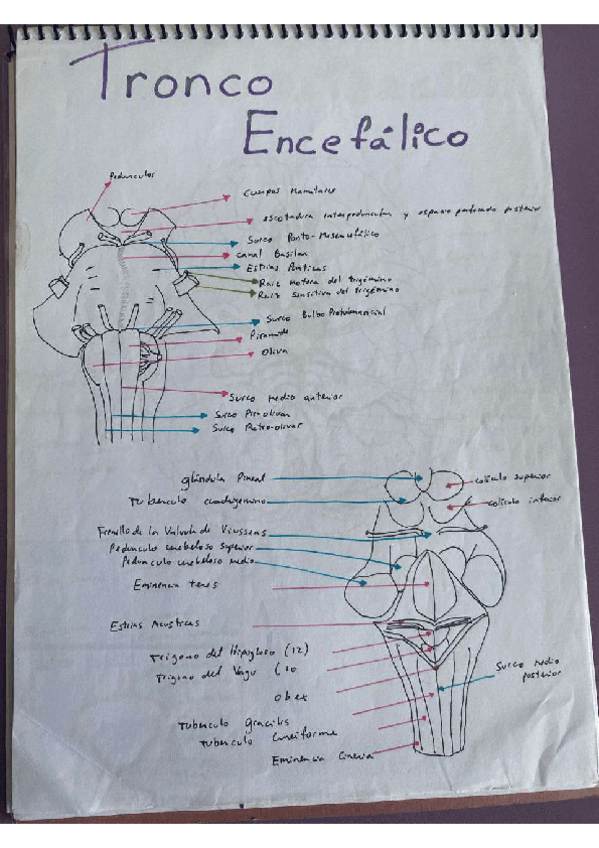 Tronco
Encefálico
Pedunculos
Cuerpos Mamilares
escotadura interpeduncular y espacio perforado posterior
Surco Ponto-Mesencefálico
Canal Basilar
Estrias Ponticas
Raiz Motora del trigémino
Raiz Sensitiva del trigémino
Surco Bulbo Protuberancial
Piramide
Oliva
Surco Medio anterior
Surco Pre-olivar
Surco Retro-olivar
glándula Pineal
colículo superior
Tuberculo cuadrigemino
colículo inferior
Frenillo de la Valvula de Vieussens
Pedunculo cerebeloso Superior
Pedunculo cerebeloso medio
Eminencia teres
Estrias Acusticas
Trigono del Hipogloso (12)
Trigono del Vago (10
Surco Medio
posterior
obex
Tuberculo Gracilis
Tuberculo Cuneiforme
Eminencia Cinerea